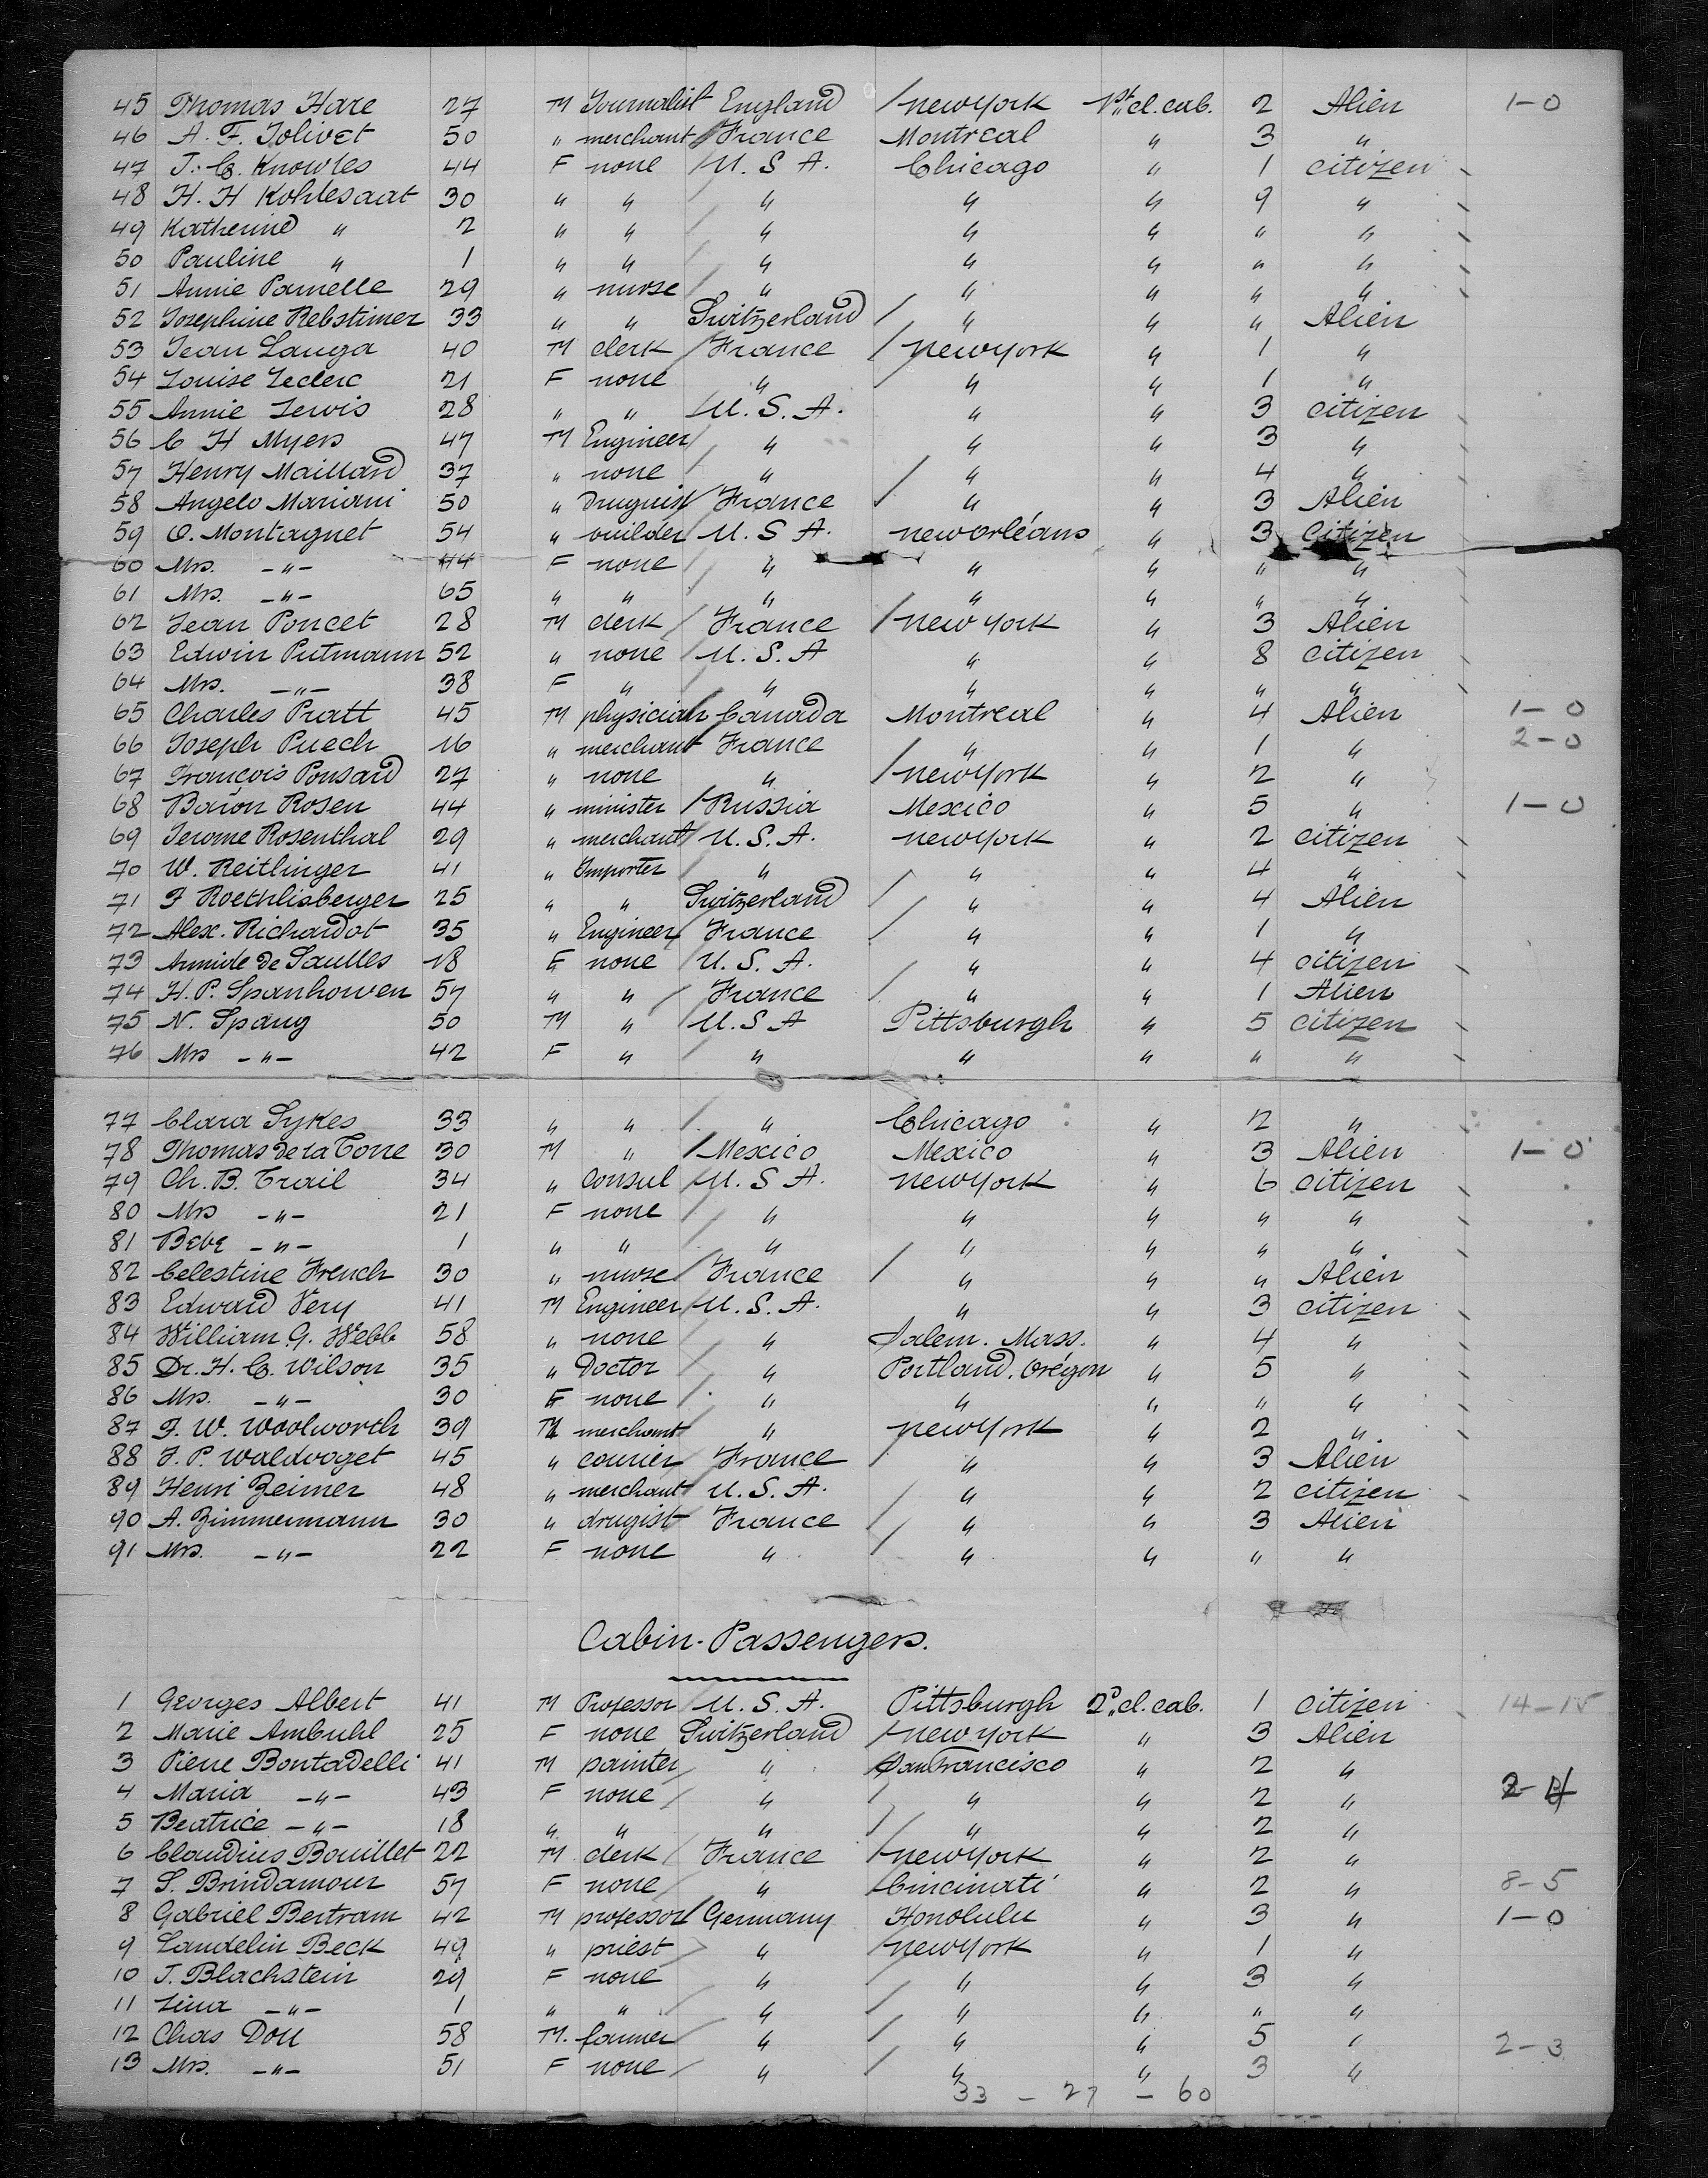 45 Thomas Hare 27 M Journalist England / new york 1st cl. cab. 2 Alien 1-0
46 A. F. Jolivet 50 " merchant / France Montreal " 3 "
47 J. C. Knowles 44 F none / U. S. A. Chicago " 1 citizen
48 H. H Kohlesaat 30 " " / " " " 9 "
49 Katherine " 2 " " / " " " " "
50 Pauline " 1 " " / " " " " "
51 Annie Parnelle 29 " nurse / " " " " "
52 Josephine Rebstimer 33 " " Switzerland / " " " Alien
53 Jean Lauga 40 M clerk / France / new york " 1 "
54 Louise Leclerc 21 F none " / " " 1 "
55 Annie Lewis 28 " " / U. S. A. " " 3 citizen
56 C H Myers 47 M Engineer / " " " 3 "
57 Henry Maillard 37 " none " / " " 4 "
58 Angelo Mariani 50 " Druguist / France / " " 3 Alien
59 O. Montagnet 54 " builder U. S A. new orléans " 3 Citizen
60 Mrs. -"- 44 F none / " " " " "
61 Mrs. -"- 65 " " / " " " " "
62 Jean Poncet 28 M clerk / France / new york " 3 Alien
63 Edwin Putmann 52 " none / U. S. A " " 8 citizen
64 Mrs. -"- 38 F " / " " " " "
65 Charles Pratt 45 M physician / Canada Montreal " 4 Alien 1-0
66 Joseph Puech 16 " merchant France " " 1 " 2-0
67 François Ponsard 27 " none " / new york " 2 "
68 Baron Rosen 44 " minister / Russia Mexico " 5 " 1-0
69 Jerome Rosenthal 29 " merchant / U. S. A. new york " 2 citizen
70 W. Reitlinger 41 " Importer / " " " 4 "
71 F Roethlisberger 25 " " Switzerland / " " 4 Alien
72 Alex. Richardot 35 " Engineer / France / " " 1 "
73 Armide de Saulles 18 F none / U. S. A. " " 4 citizen
74 H. P. Spanhowen 57 " " / France / " " 1 Alien
75 N. Spang 50 M " / U. S A Pittsburgh " 5 citizen
76 Mrs -"- 42 F " / " " " " "
77 Clara Sykes 33 " " / " Chicago " 2 "
78 Thomas de la Torre 30 M " / Mexico Mexico " 3 Alien 1-0
79 Ch. B. Trail 34 " consul / U. S A. new york " 6 citizen
80 Mrs -"- 21 F none / " " " " "
81 Bebe -"- 1 " " / " " " " "
82 Celestine French 30 " nurse / France / " " " Alien
83 Edward Very 41 M Engineer / U. S. A. " " 3 citizen
84 William G. Webb 58 " none / " Salem. Mass. " 4 "
85 Dr. H. C. Wilson 35 " Doctor / " Portland. Orégon " 5 "
86 Mrs. -"- 30 F none / " " " " "
87 F. W. Woolworth 39 M merchant " new york " 2 "
88 J. P. Waldvoget 45 " courier / France / " " 3 Alien
89 Henri Zeimer 48 " merchant U. S. A. " " 2 citizen
90 A. Zimmermann 30 " drugist France / " " 3 Alien
91 Mrs. -"- 22 F none " / " " " "
Cabin-Passengers.
1 Georges Albert 41 M Professor / U. S. A. Pittsburgh 2d cl. cab. 1 citizen 14-15
2 Marie Ambuhl 25 F none Switzerland / new york " 3 Alien
3 Pierre Bontadelli 41 M painter / " San Francisco " 2 "
4 Maria -"- 43 F none / " / " " 2 "
5 Beatrice -"- 18 " " / " / " " 2 "
6 Claudius Bouillet 22 M clerk / France / new york " 2 "
7 S. Brindamour 57 F none / " Cincinati " 2 " 8-5
8 Gabriel Bertram 42 M professor / Germany Honolulu " 3 " 1-0
9 Landelin Beck 49 " priest / " / new york " 1 "
10 J. Blachstein 29 F none / " / " " 3 "
11 Lina -"- 1 " " / " / " " " "
12 Chas Doll 58 M. farmer / " / " " 5 "
13 Mrs. -"- 51 F none / " / " " 3 " 2-3
33 - 27 - 60